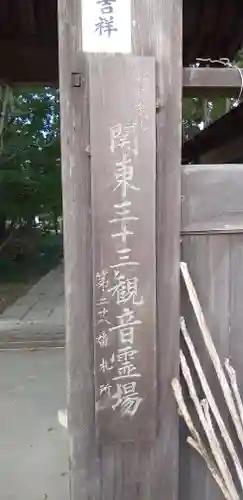 吉祥
関東三十三観音霊場
第二十八番札所